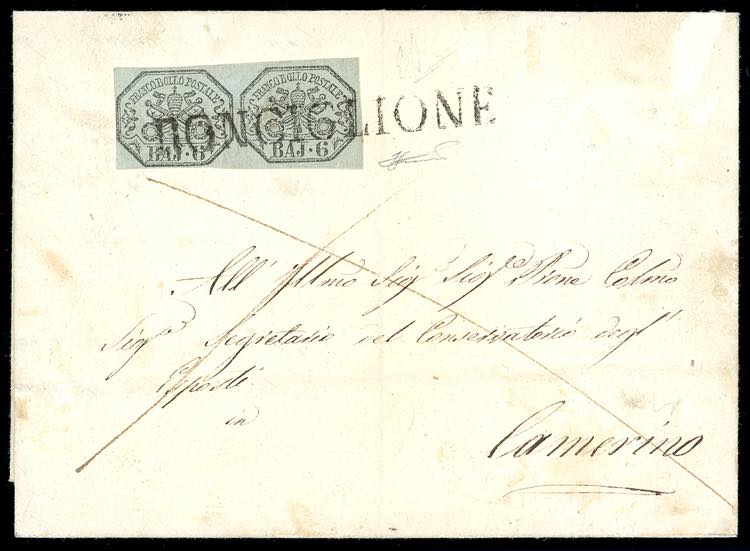 FRANCO BOLLO POSTALE FRANCO BOLLO POSTALE
BAJ·6 BAJ·6
RONCIGLIONE
All' Illmo Sigr Sigre Pne Colmo
Sigre Segretario del Conservatorio degl'
Esposti
in
Camerino